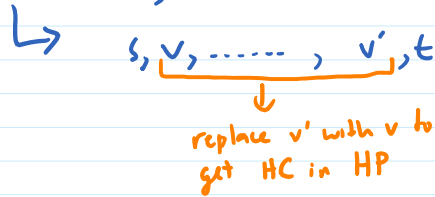 s, v, ........ , v', t
replace v' with v to
get HC in HP